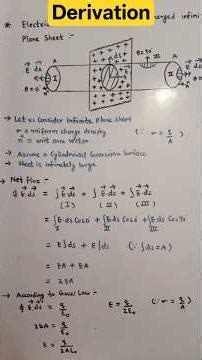 Derivation
* Electric charged infini
Plane Sheet :-
→ Let us Consider infinite Plane sheet
σ = uniform charge density (∵ σ = q/A)
n̂ = unit area vector
→ Assume a Cylindrical Gaussian Surface
→ sheet is infinitely large
→ Net Flux :-
∮E.ds = ∫E.ds + ∫E.ds + ∫E.ds
(I) (II) (III)
= ∫E.ds Cos0° + ∫E.ds Cos0° + ∫E.ds Cos90
= E∫ds + E∫ds (∵ ∫ds = A)
= EA + EA
= 2EA
→ According to Gauss Law :-
∮E.ds = q/ε₀ E = σ/2ε₀ (∵ σ = q/A)
2EA = q/ε₀
E = q/2Aε₀